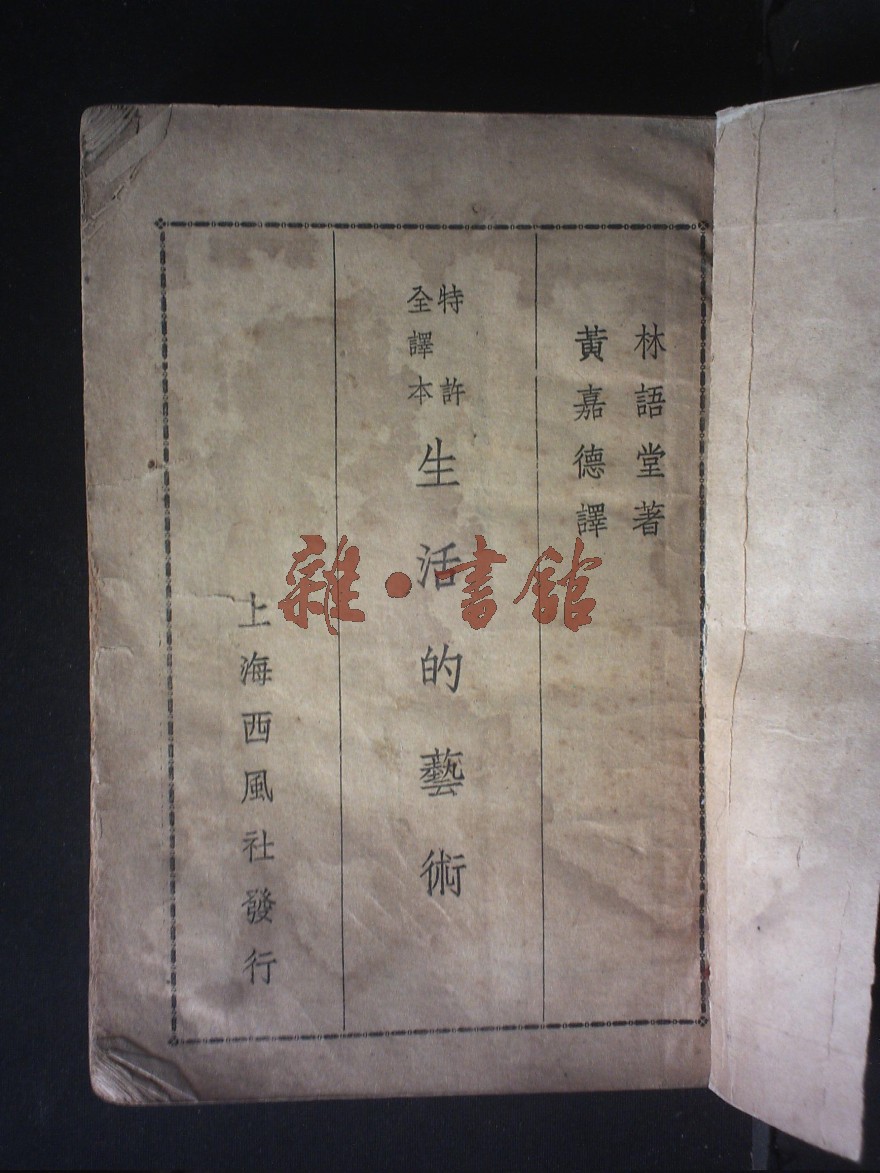 林語堂著
黃嘉德譯
特許
全譯本
生活的藝術
上海西風社發行
雜·書館